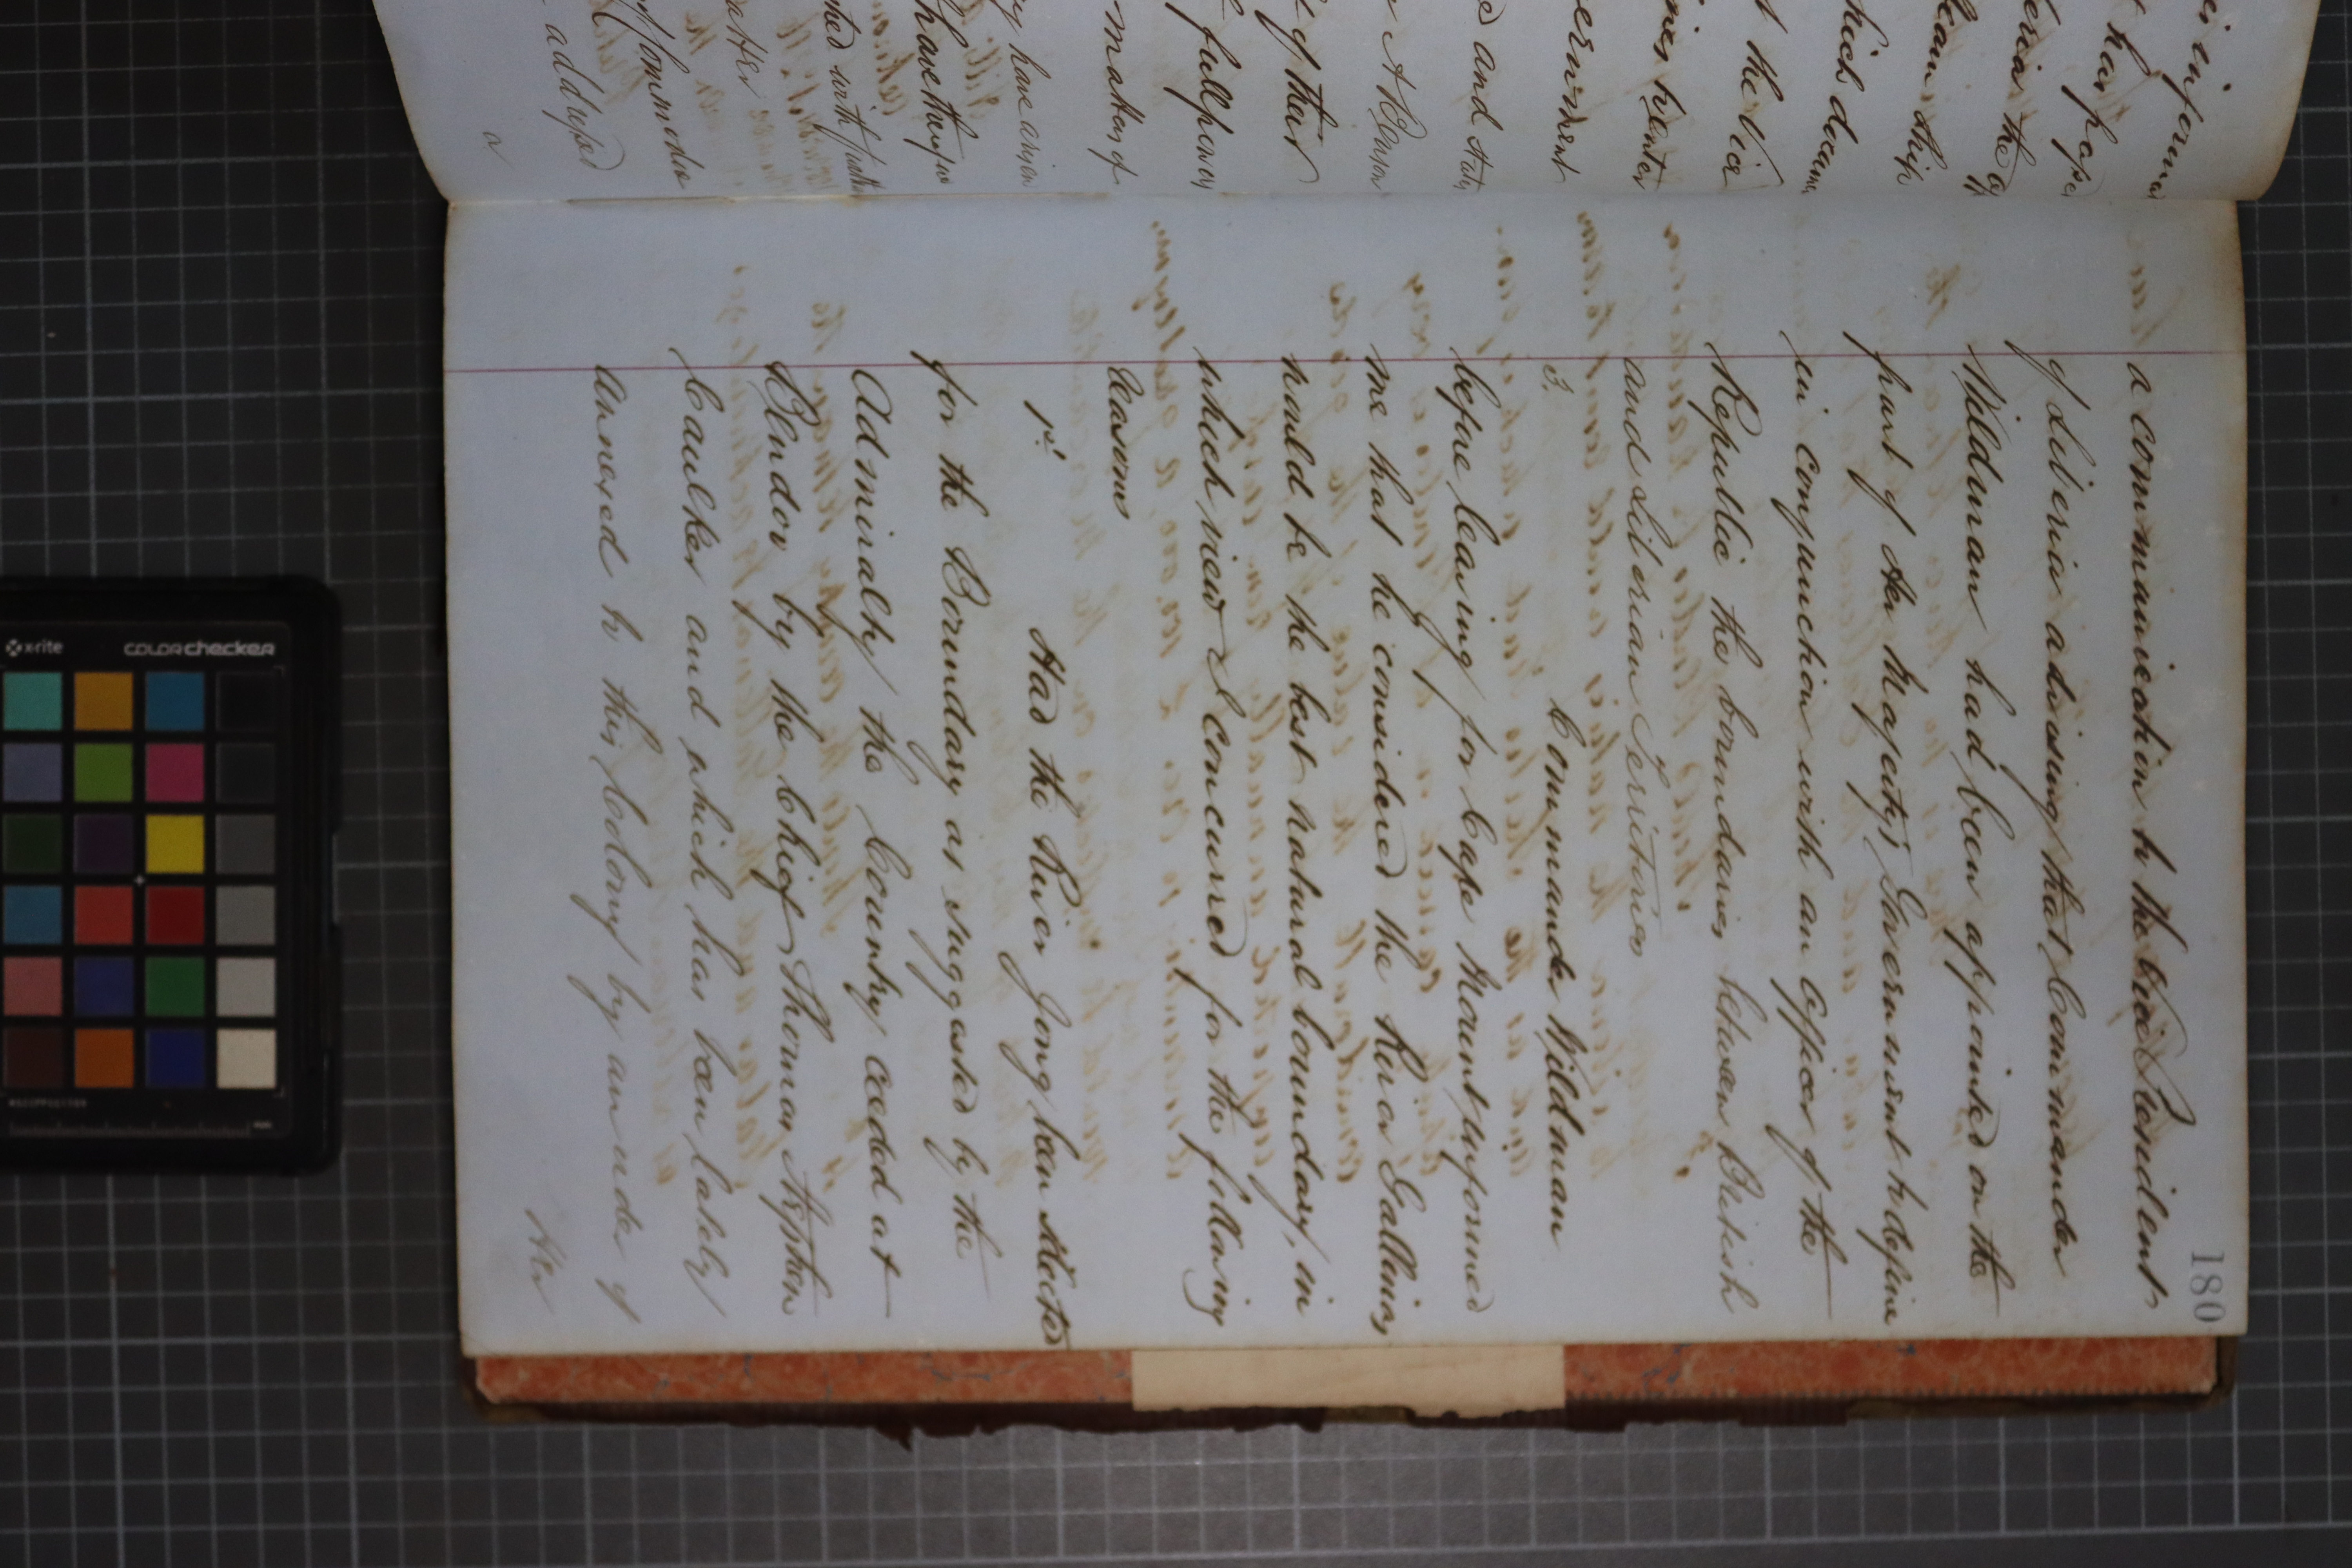 180
a communication to the Vice President
of Liberia advising that Commander
Wildman had been appointed on the
part of Her Majesty's Government to define
in conjunction with an officer of the
Republic the boundaries between British
and Liberian Territories
3. Commander Wildman
before leaving for Cape Mount informed
me that he considered the River Gallinas
would be the best natural boundary, in
which view I concurred for the following
reasons
1st. Had the River Jong been selected
for the Boundary as suggested by the
Admiralty the Country ceeded at
Bendoo by the Chief Thomas Stephen
Caulker and which has been lately
annexed to this Colony by an order of
Her
is inform
t has
the
which
t the Vice
ernment
s and
of their
full power
making of
ry have
have
ned with
atter
of Commander
addressed
a
x-rite
colorchecker